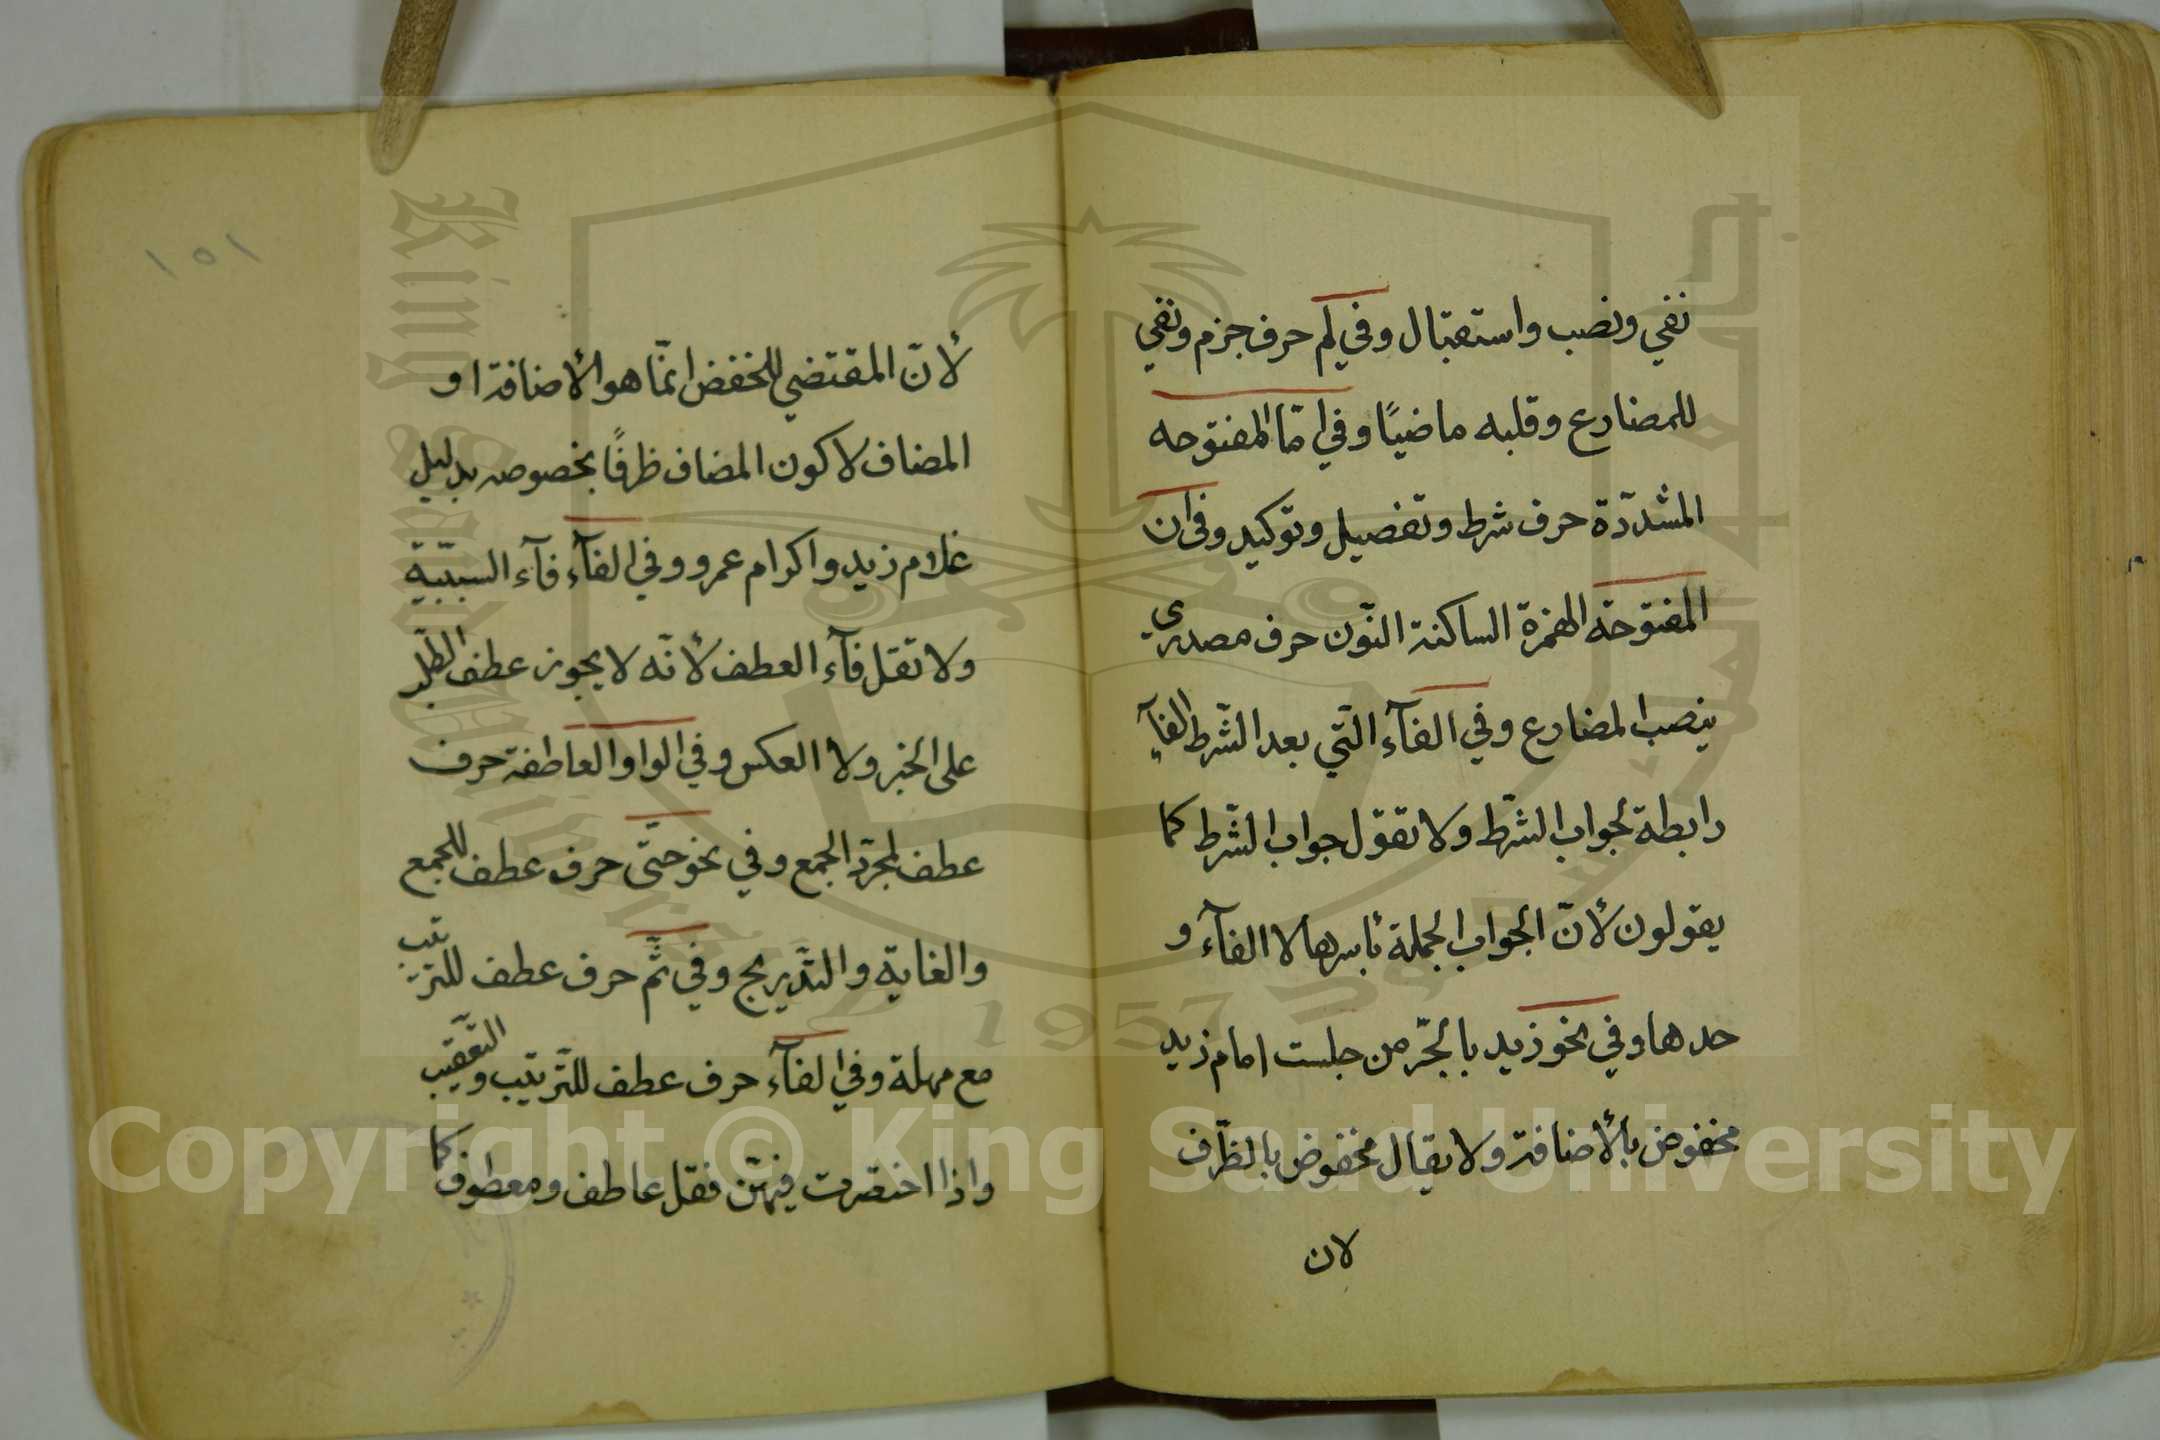 نفي ونصب واستقبال وفي لم حرف جزم ونفي
للمضارع وقلبه ماضيًا وفي امّا المفتوحه
المشدّدة حرف شرط وتفصيل وتوكيد وفي ان
المفتوحة الهمزة الساكنة النّون حرف مصدري
ينصب المضارع وفي الفآء الّتي بعد الشّرط الفآء
رابطة لجواب الشّرط ولا تقول جواب الشّرط كما
يقولون لأنّ الجواب الجملة بأسرها لا الفآء و
حدها وفي نحو زيد بالجّر من جلست امام زيد
مخفوض بالأضافة ولا يقال مخفوض بالظّرف
لان
١٥١
لأنّ المقتضي للخفض انمّا هو الأضافة او
المضاف لا كون المضاف ظرفًا بخصوصه بدليل
غلام زيد واكرام عمرو وفي الفآء فآء السببّية
ولا تقل فآء العطف لأنّه لا يجوز عطف الطّلب
على الخبر ولا العكس وفي الواو العاطفة حرف
عطف لمجرّد الجمع وفي نحو حتّى حرف عطف للجمع
والغاية والتّدريج وفي ثّم حرف عطف للترتيب
مع مهلة وفي الفآء حرف عطف للتّرتيب والتّعقيب
واذا اختصرت فيهنّ فقل عاطف ومعطوف كما
King Saud University
1957
Copyright © King Saud University